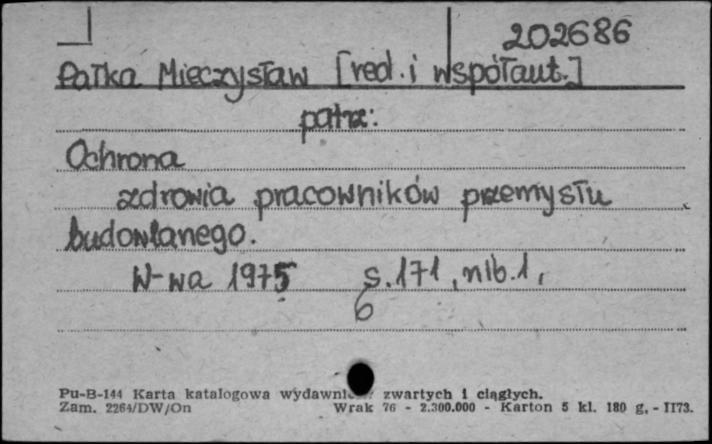 202686
Pałka Mieczysław [red. i współaut.]
patrz:
Ochrona
zdrowia pracowników przemysłu
budowlanego.
W-wa 1975 s. 171, nlb. 1,
6
Pu-B-144 Karta katalogowa zwartych i ciągłych.
Zam. 2264/DW/On Wrak 76 - 2.300.000 - Karton 5 kl. 180 g. - II73.